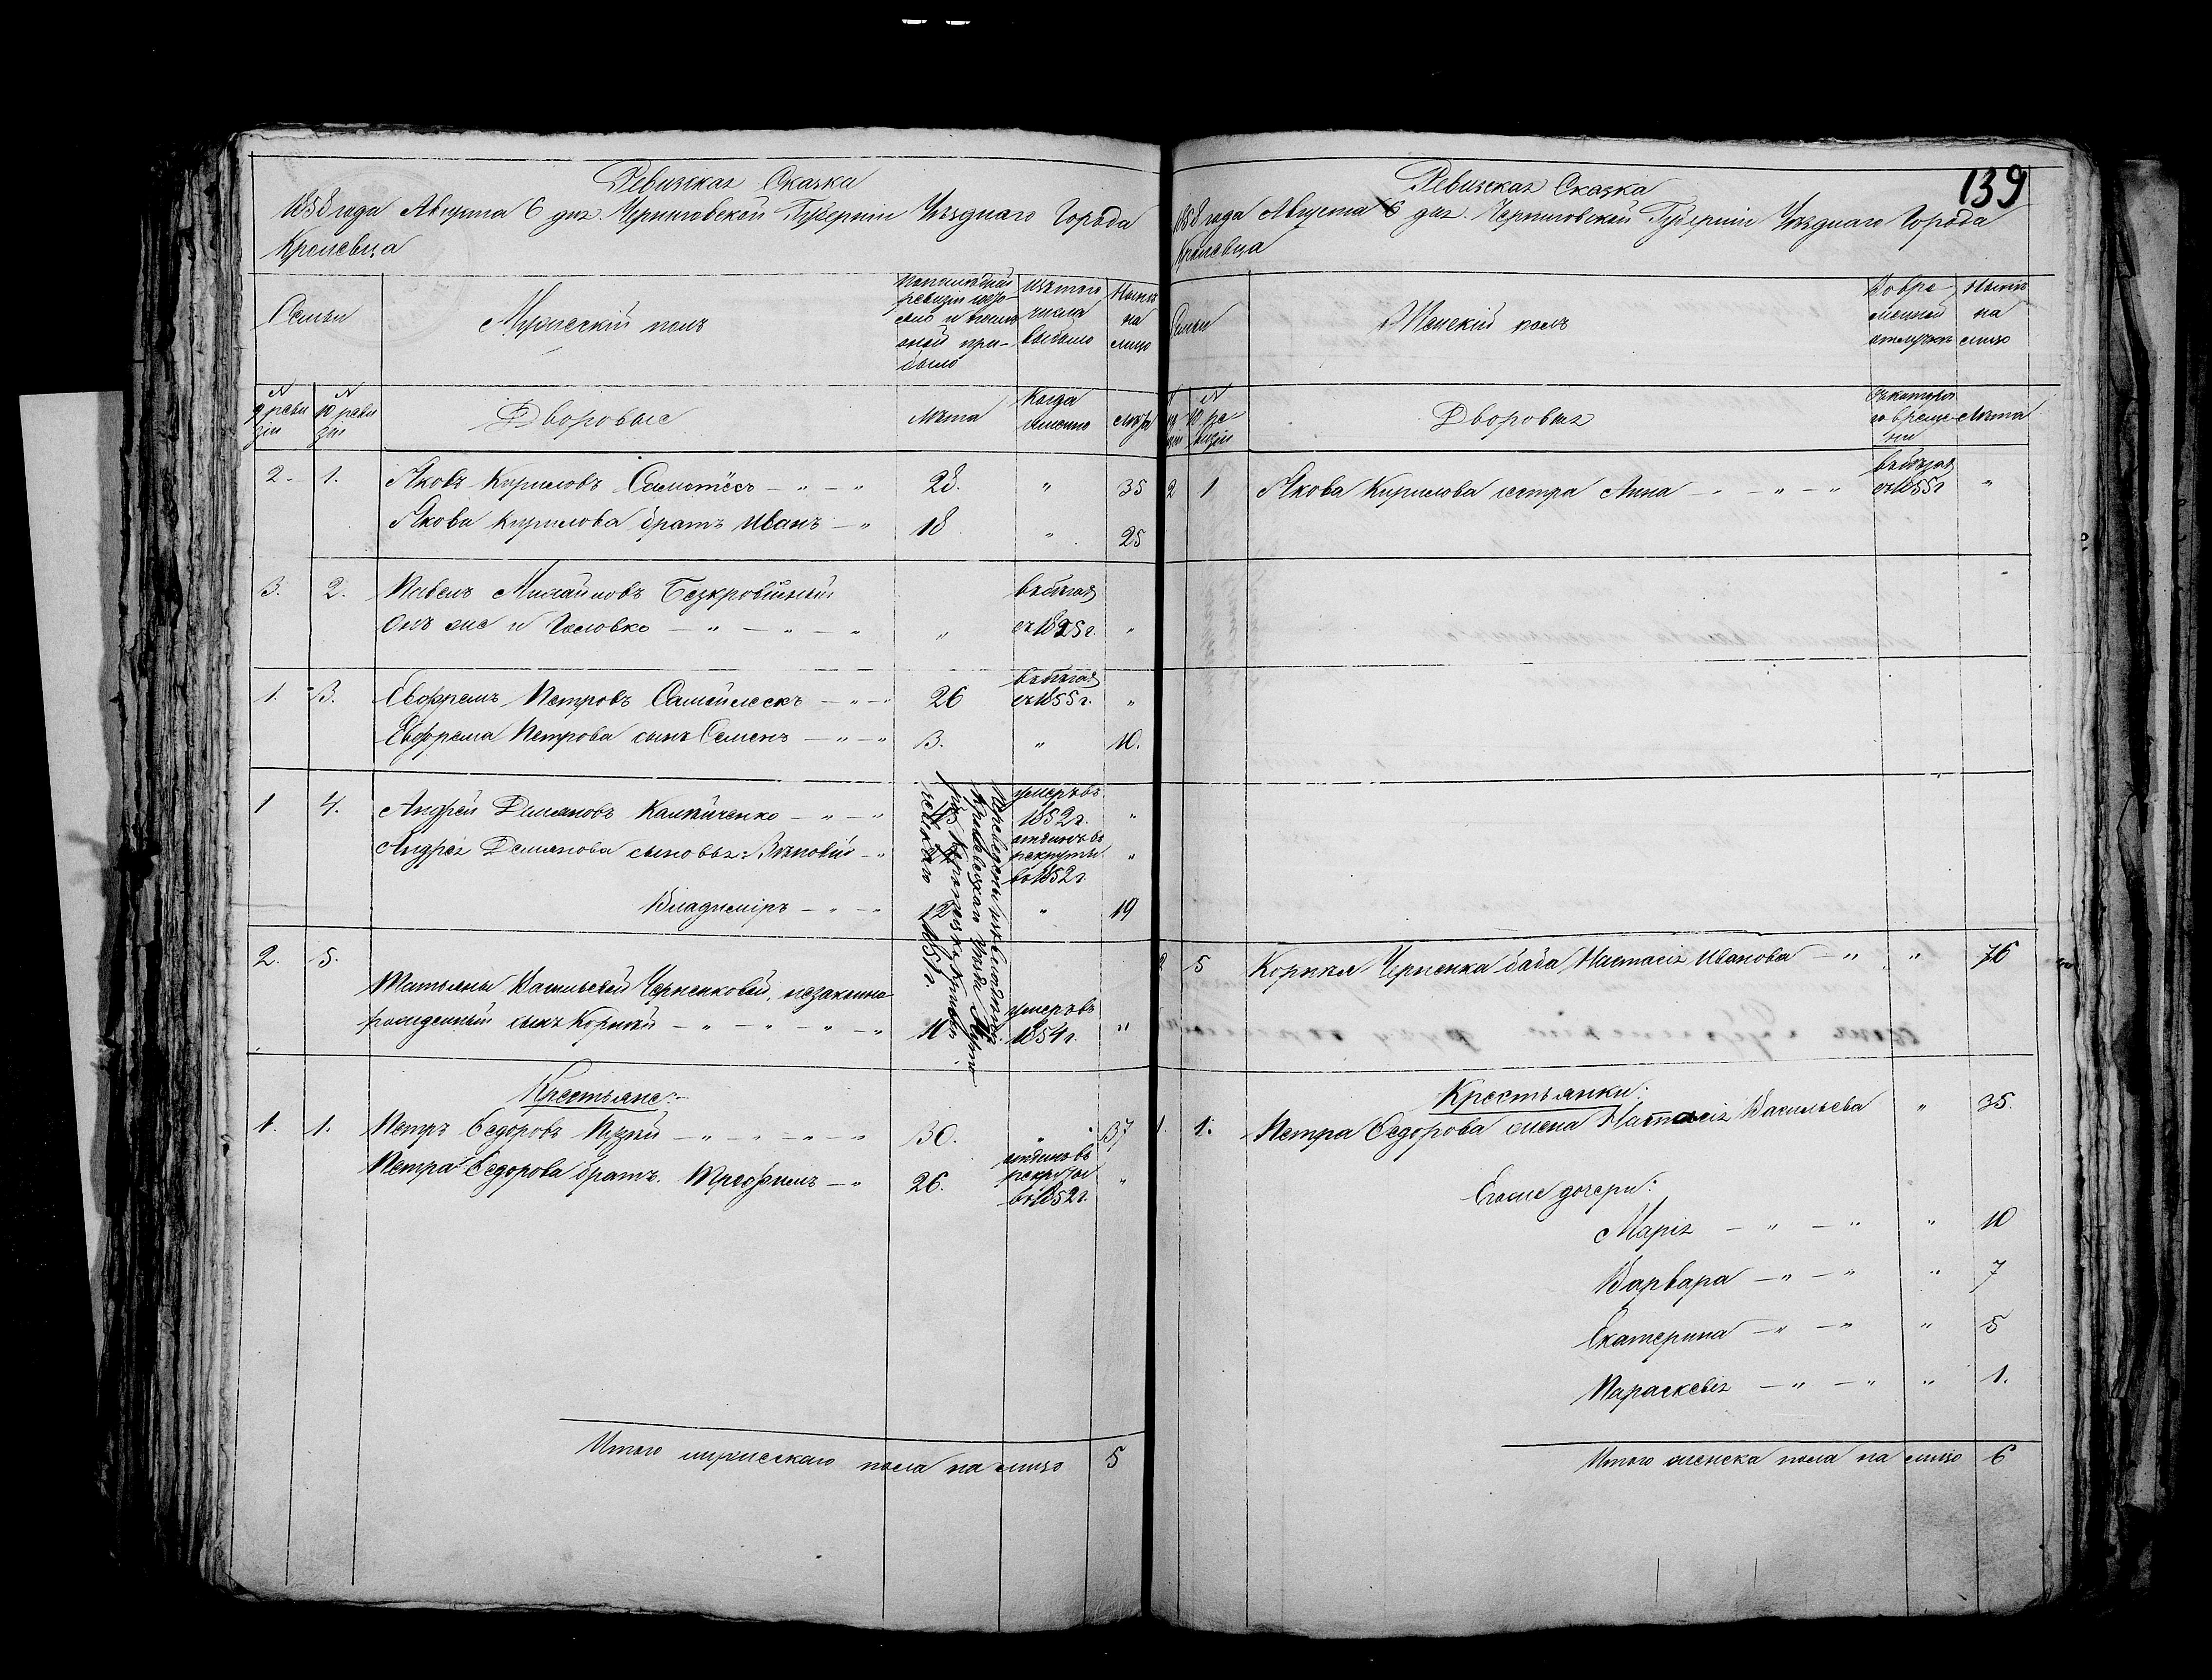 Ревизская Сказка
1858 года Августа 6 дня. Черниговской Губернии Уѣзднаго Города
Кролевца
Семьи
Мужескій полъ
Изъ того числа выбыло
Ныне на лицо
№ 9 реви зіи
№ 10 реви зіи
Дворовые
Лѣта
Когда именно
Лѣта
2. 1. Яковъ Кириловъ — „ — „ 28. „ 35
Якова Кирилова братъ Иванъ — „ 18 „ 25
3. 2. Павелъ Безкровный въ бѣгахъ
Онъ же и Головко — „ — „ — „ „ съ 1825 г. „
1. 3. Евфремъ Петровъ — „ — „ 26 въ бѣгахъ съ 1855 г. „
Евфрема Петрова сынъ Семенъ — „ — „ 3. „ 10.
1 4. Андрей Демяновъ — „ — „ умеръ въ 1852 г. „
Андрея Демянова сыновья: Зѣновій — „ отданъ въ рекруты въ 1852 г. „
Владиміръ — „ — „ 12 „ 19
2. 5.
Татьяны Васильевой Черненковой, незаконно
рожденный сынъ Корнилій — „ — „ — „ — „ 11 умеръ въ 1854 г. „
Крестьяне:
1. 1. Петръ Федоровъ — „ — „ — „ — „ 30. „ 37
Петра Федорова братъ Трофимъ — „ 26. отданъ въ рекруты въ 1852 г. „
Итого мужескаго пола на лицо 5
139
Ревизская Сказка
1858 года Августа 6 дня. Черниговской Губерніи Уѣзднаго Города
Кролевца
Семьи
Женскій полъ
Во временной отлучкѣ
Ныне на лицо
№ 10 ре визіи
Дворовыя
Съ котораго времени
Лѣта
2 1 Якова Кирилова сестра Анна — „ — „ — „ въ бѣгахъ съ 1855 г. „
2 5 Черненка баба Настасія Иванова — „ „ 76
Крестьянки:
1. 1. Петра Федорова жена Настасія Васильева „ 35.
Егоже дочери:
Марія — „ — „ „ 10
Варвара — „ — „ „ 7
Екатерина — „ — „ „ 5
Параскевія — „ — „ „ 1.
Итого женска пола на лицо 6